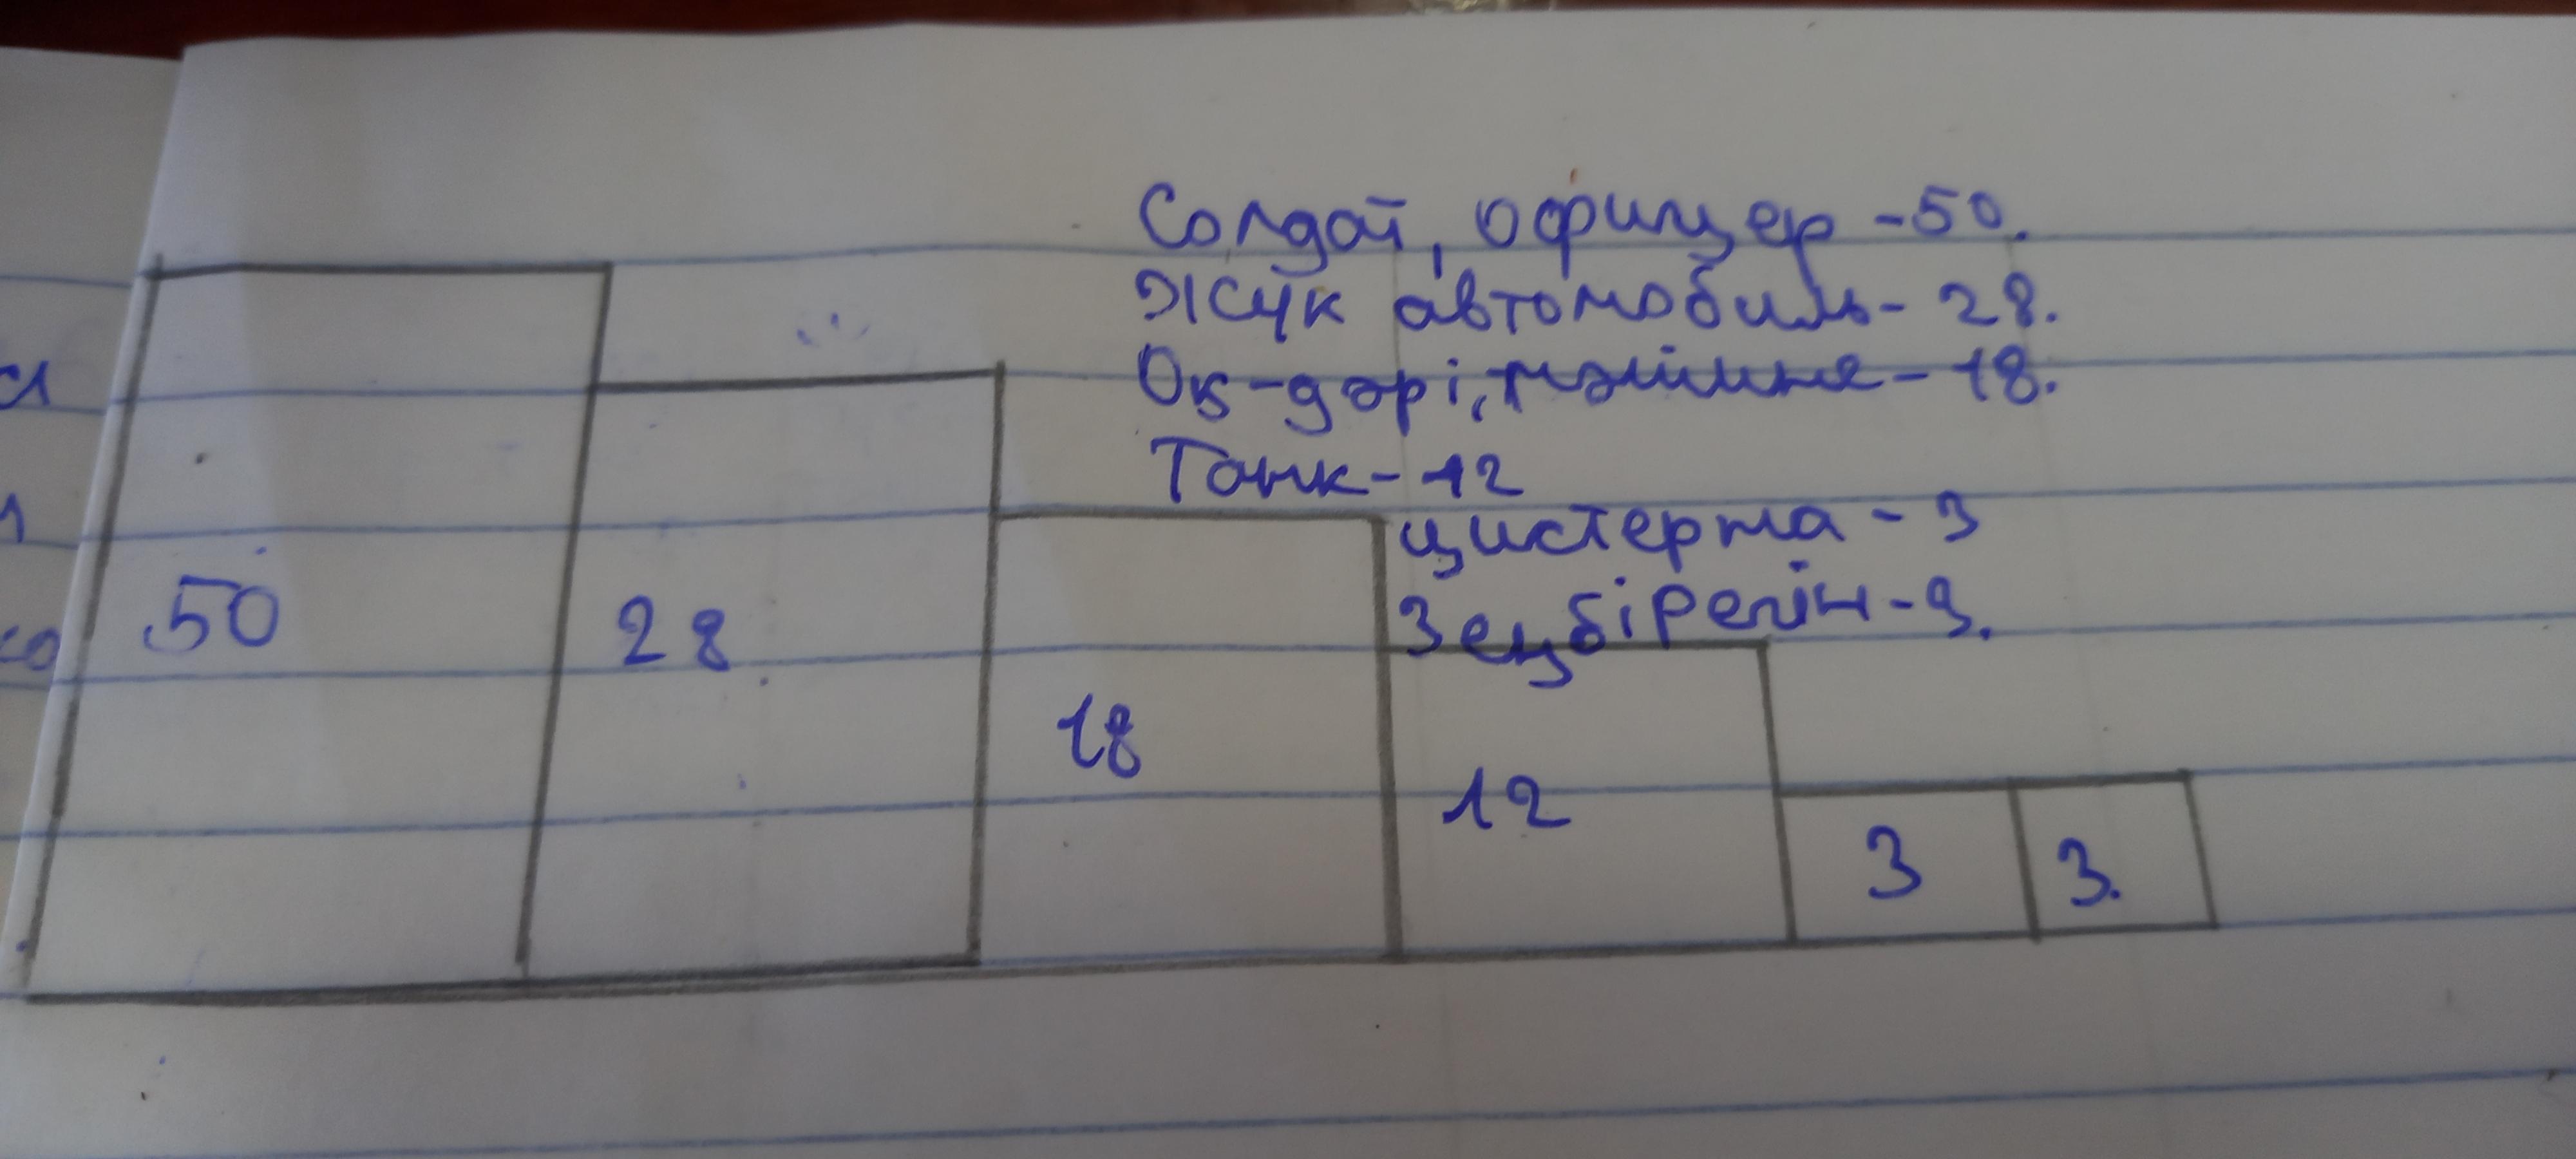 Солдат, офицер - 50.
Жүк автомобиль - 28.
Оқ-дәрі, мәшине - 18.
Танк - 12
цистерна - 3
Зеңбірегін - 3.
50
28
18
12
3
3.